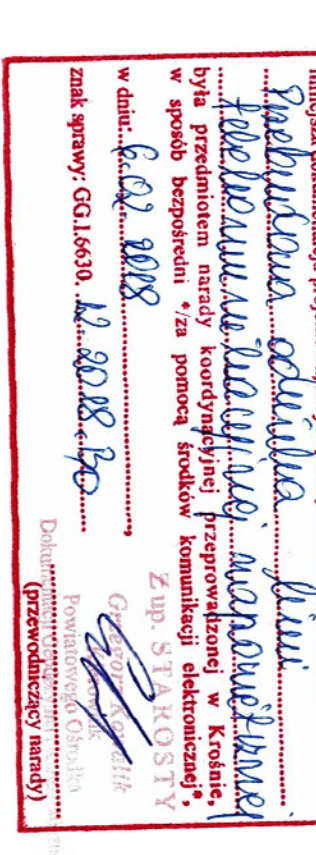 niniejsza dokumentacja
Przebudowa odcinka linii
telekomunikacyjnej napowietrznej
była przedmiotem narady koordynacyjnej przeprowadzonej w Krośnie,
w sposób bezpośredni */za pomocą środków komunikacji elektronicznej*,
w dniu: 6.02.2018
znak sprawy: GG.I.6630. 12.2018.BO
Z up. STAROSTY
Grzegorz Kowalik
Kierownik
Powiatowego Ośrodka
Dokumentacji Geodezyjnej
(przewodniczący narady)